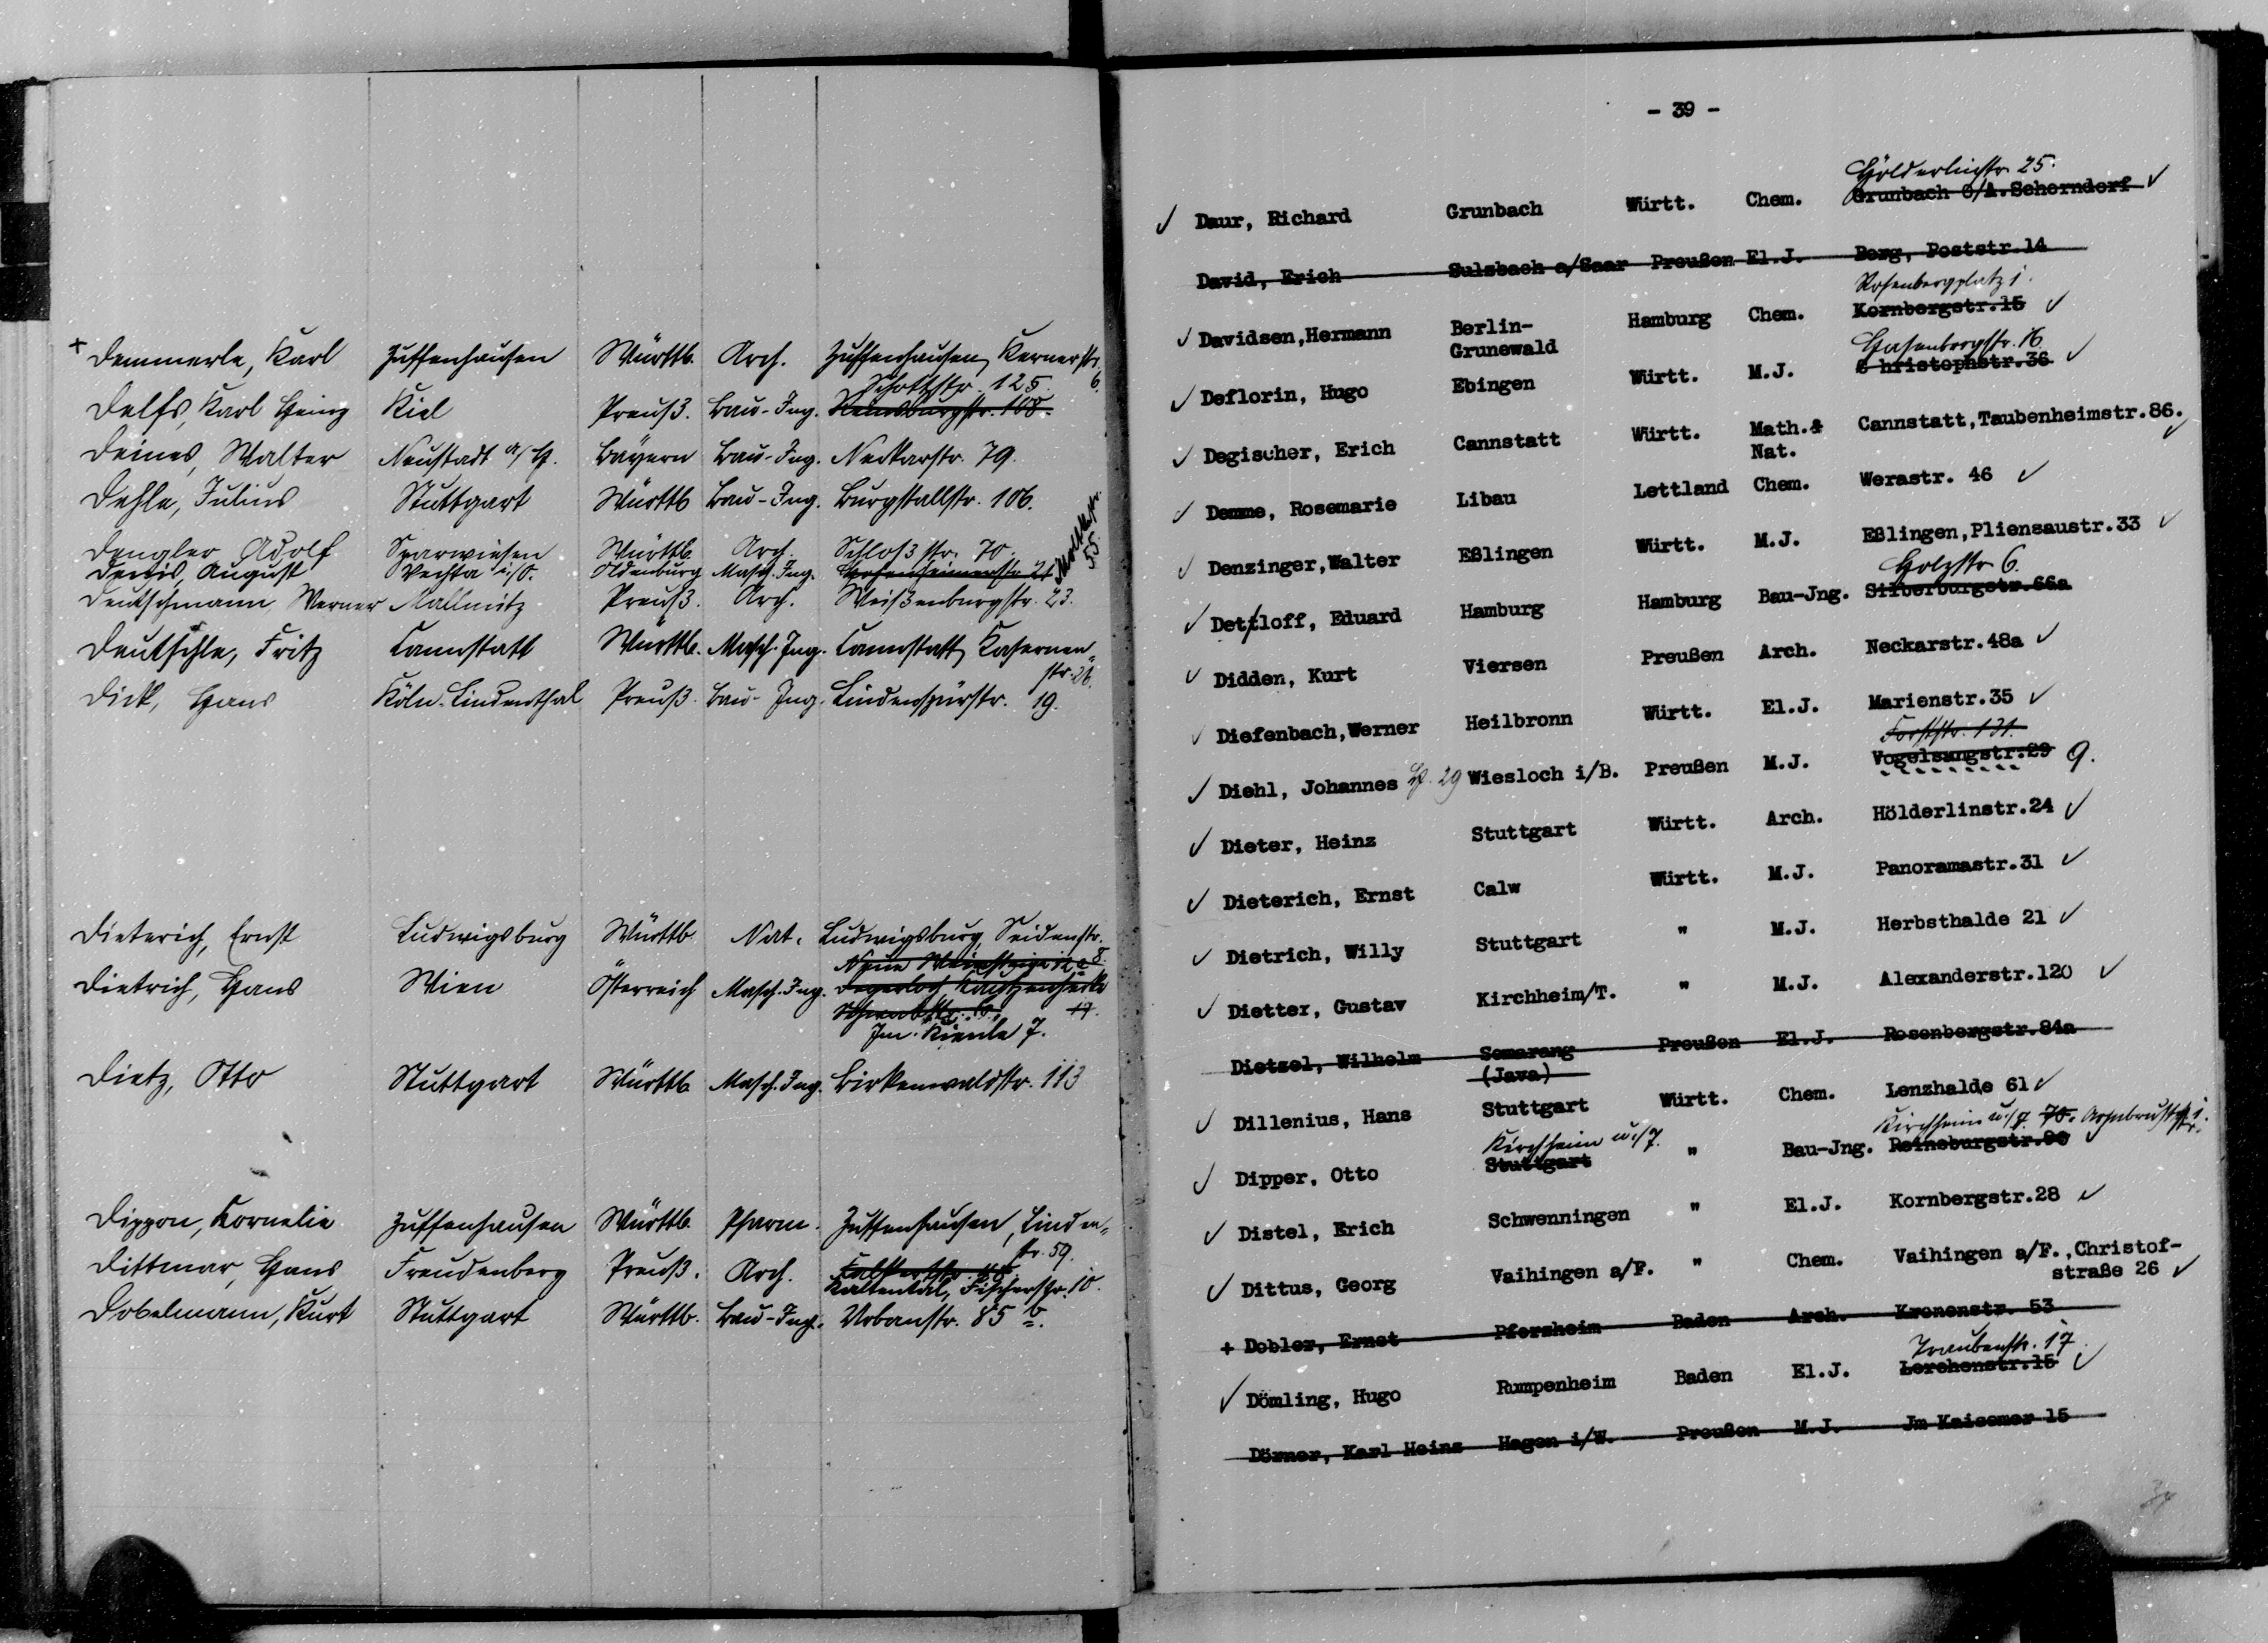 + Demmerle, Karl Zuffenhausen Württb. Arch. Zuffenhausen, Kernerstr. 6.
Schottstr. 125.
Delfs, Karl Heinz Kiel Preuß. Bau-Ing. Reinsburgstr. 168.
Deines, Walter Neustadt a/H. Bayern Bau-Ing. Neckarstr. 79.
Dehle, Julius Stuttgart Württb Bau-Ing. Burgstallstr. 106.
Dengler Adolf Sparwiesen Württb. Arch. Schloßstr. 70.
Denis, August Vechta i/O. Oldenburg Masch. Ing. 55.
Deutschmann, Werner Mallmitz Preuß. Arch. Weißenburgstr. 23.
Deutschle, Fritz Cannstatt Württb. Masch. Ing. Cannstatt, Kasernen-
str. 26.
Dick, Hans Köln-Lindenthal Preuß. Bau-Ing. Lindenspürstr. 19.
Dieterich, Ernst Ludwigsburg Württb. Nat. Ludwigsburg, Seidenstr.
8.
Dietrich, Hans Wien Österreich Masch. Ing. Degerloch,
17.
Im Kienle 7.
Dietz, Otto Stuttgart Württb. Masch. Ing. Birkenwaldstr. 113
Dippon, Kornelie Zuffenhausen Württb. Pharm. Zuffenhausen, Linden-
str. 59.
Dittmar, Hans Freudenberg Preuß. Arch.
Kaltental, Fischerstr. 10.
Dobelmann, Kurt Stuttgart Württb. Bau-Ing. Urbanstr. 85 b.
- 39 -
Hölderlinstr. 25.
✓ Daur, Richard Grunbach Württ. Chem. Grunbach O/A.Schorndorf ✓
David, Erich Sulzbach a/Saar Preußen El.J. Berg, Poststr.14
Rosenbergplatz 1.
✓ Davidsen,Hermann Berlin- Hamburg Chem. Kornbergstr.15 ✓
Grunewald
Hasenbergstr. 16.
✓ Deflorin, Hugo Ebingen Württ. M.J. Christophstr.36 ✓
✓ Degischer, Erich Cannstatt Württ. Math.& Cannstatt,Taubenheimstr.86. ✓
Nat.
✓ Demme, Rosemarie Libau Lettland Chem. Werastr. 46 ✓
✓ Denzinger,Walter Eßlingen Württ. M.J. Eßlingen,Pliensaustr.33 ✓
Holzstr. 6.
✓ Detloff, Eduard Hamburg Hamburg Bau-Jng. Silberburgstr.66a
✓ Didden, Kurt Viersen Preußen Arch. Neckarstr.48a ✓
✓ Diefenbach,Werner Heilbronn Württ. El.J. Marienstr.35 ✓
Forststr. 131.
✓ Diehl, Johannes 29 Wiesloch i/B. Preußen M.J. Vogelsangstr.29 9.
✓ Dieter, Heinz Stuttgart Württ. Arch. Hölderlinstr.24 ✓
✓ Dieterich, Ernst Calw Württ. M.J. Panoramastr.31 ✓
✓ Dietrich, Willy Stuttgart " M.J. Herbsthalde 21 ✓
✓ Dietter, Gustav Kirchheim/T. " M.J. Alexanderstr.120 ✓
Dietzel, Wilhelm Semarang Preußen El.J. Rosenbergstr.84a
(Java)
✓ Dillenius, Hans Stuttgart Württ. Chem. Lenzhalde 61 ✓
Kirchheim u./T. Kirchheim u./T. 70. Armbruststr. 1.
✓ Dipper, Otto Stuttgart " Bau-Jng. Reinsburgstr.90 ✓
✓ Distel, Erich Schwenningen " El.J. Kornbergstr.28 ✓
✓ Dittus, Georg Vaihingen a/F. " Chem. Vaihingen a/F.,Christof-
straße 26 ✓
+ Dobler, Ernst Pforzheim Baden Arch. Kronenstr. 53
Traubenstr. 17.
✓ Dömling, Hugo Rumpenheim Baden El.J. Lerchenstr.15 ✓
Dörner, Karl Heinz Hagen i/W. Preußen M.J. Jm Kaisemer 15